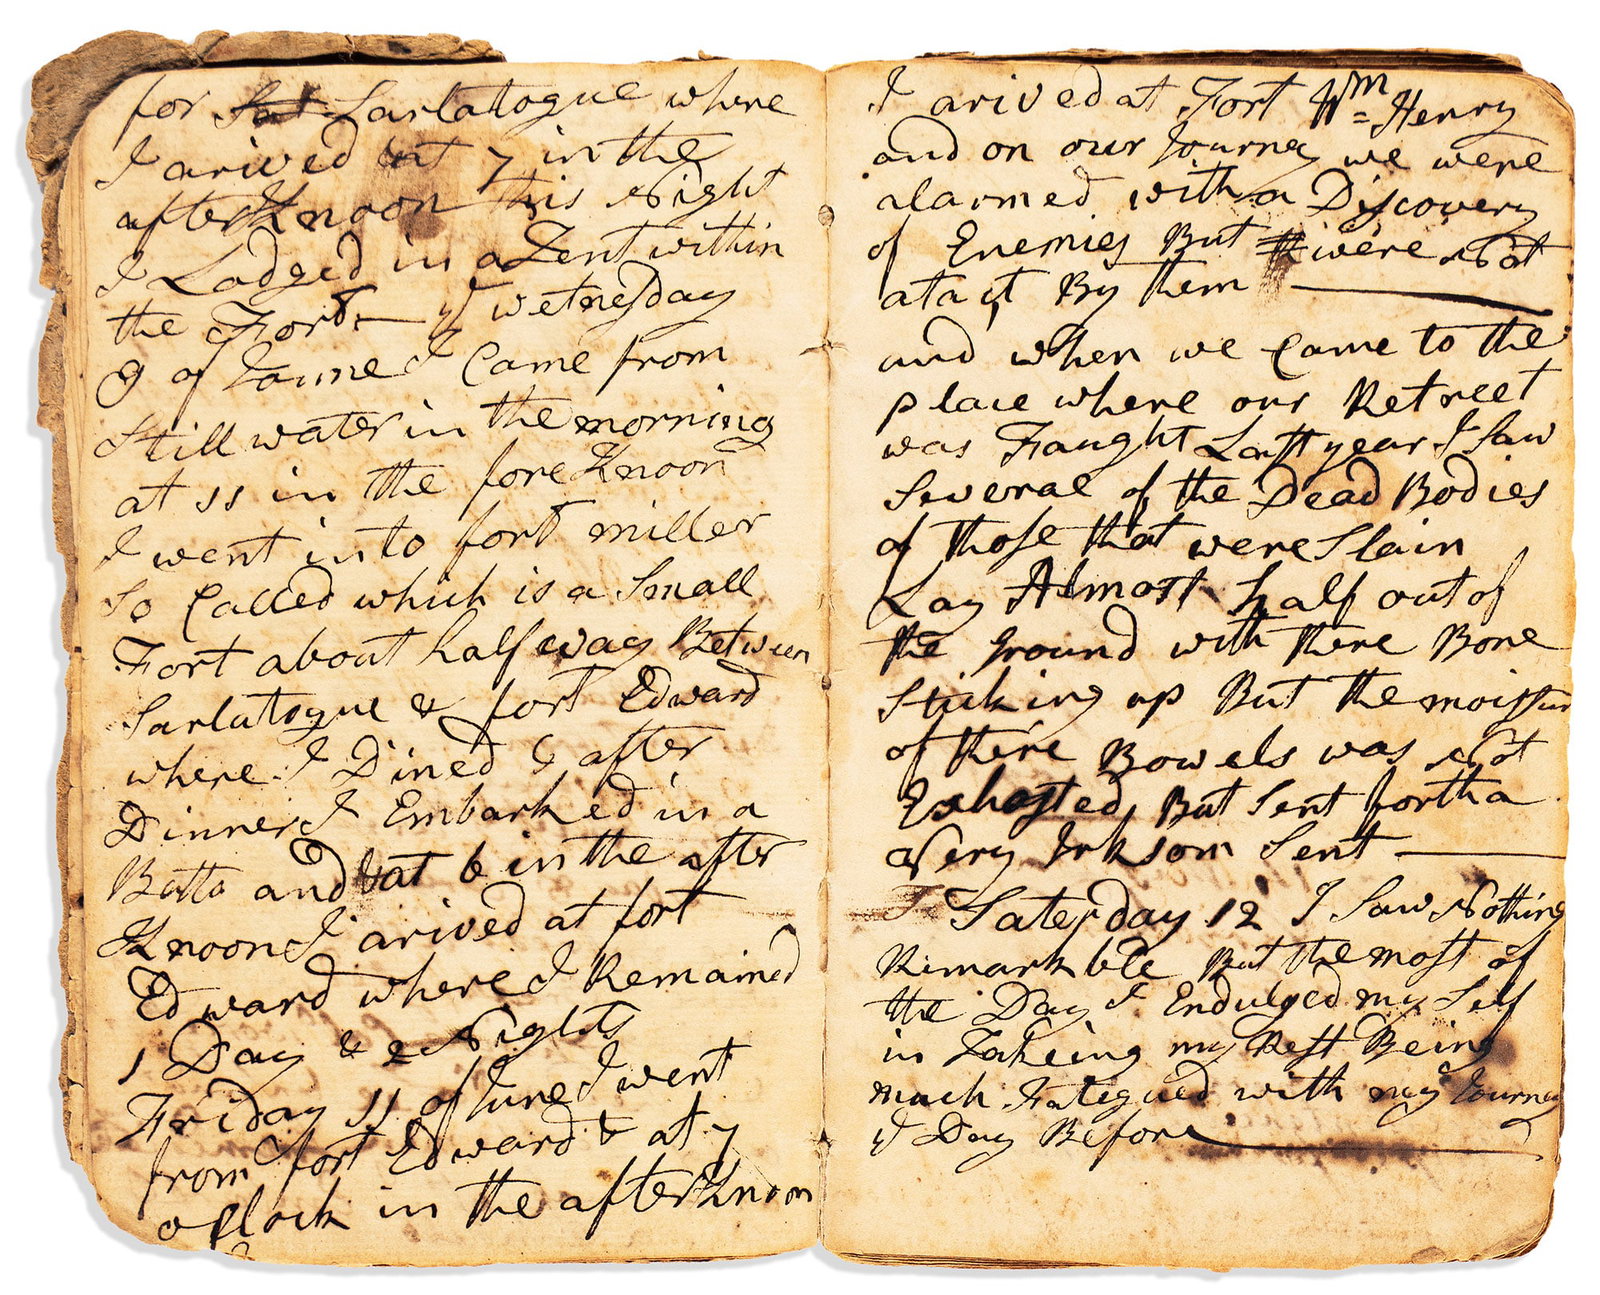 for Sat Sarlatogue where
I arived at 7 in the
afterKnoon this Night
I Lodged in a Tent within
the Fort — ye wetnesday
9 of Joune I Came from
Still water in the morning
at 11 in the foreKnoon
I went into fort miller
So Called which is a Small
Fort about half way Between
Sarlatogue & fort Edward
where I Dined & after
Dinner I Embarked in a
Batto and at 6 in the after
Knoon I arived at fort
Edward where I Remained
1 Day & 2 Nights
Friday 11 of June I went
from fort Edward & at 7
oClock in the afterKnoon
I arived at Fort Wm= Henry
and on our Journey we were
alarmed with a Discovery
of Enemies But were Not
atact By them —
and when we Came to the
place where our Retreet
was Faught Last year I Saw
Several of the Dead Bodies
of those that were Slain
Lay Almost half out of
the ground with there Bone
Sticking up But the moistur
of there Bowels was Not
Exhosted But Sent forth a
Very Irksom Sent —
Saterday 12 I Saw Nothing
Remarkble But the most of
the Day I Endulged my Self
in Takeing my Rest Being
much Fategued with my Journey
ye Day Before —